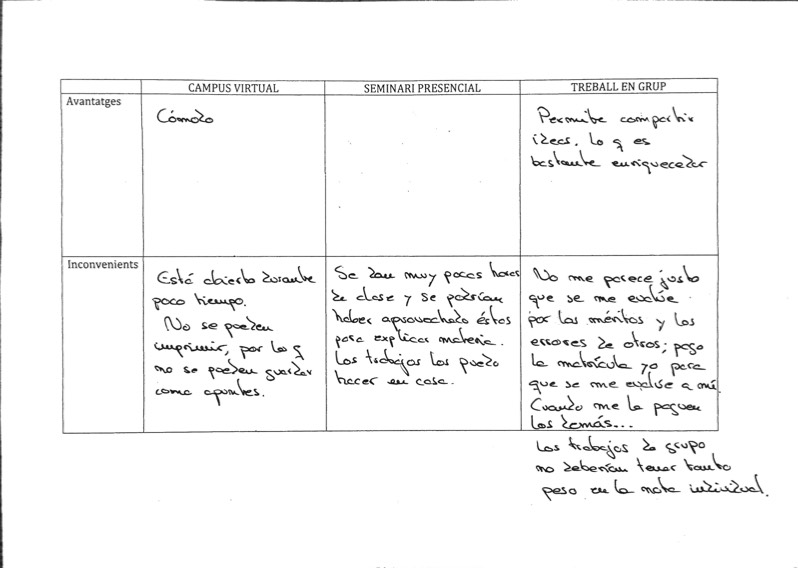 CAMPUS VIRTUAL
SEMINARI PRESENCIAL
TREBALL EN GRUP
Avantatges
Cómodo
Permite compartir
ideas, lo q es
bastante enriquecedor
Inconvenients
Está abierto durante
poco tiempo.
No se pueden
imprimir, por lo q
no se pueden guardar
como apuntes.
Se dan muy pocas horas
de clase y se podrían
haber aprovechado éstas
para explicar materia.
Los trabajos los puedo
hacer en casa.
No me parece justo
que se me evalúe
por los méritos y los
errores de otros; pago
la matrícula yo para
que se me evalúe a mí.
Cuando me la paguen
los demás...
Los trabajos de grupo
no deberían tener tanto
peso en la nota individual.